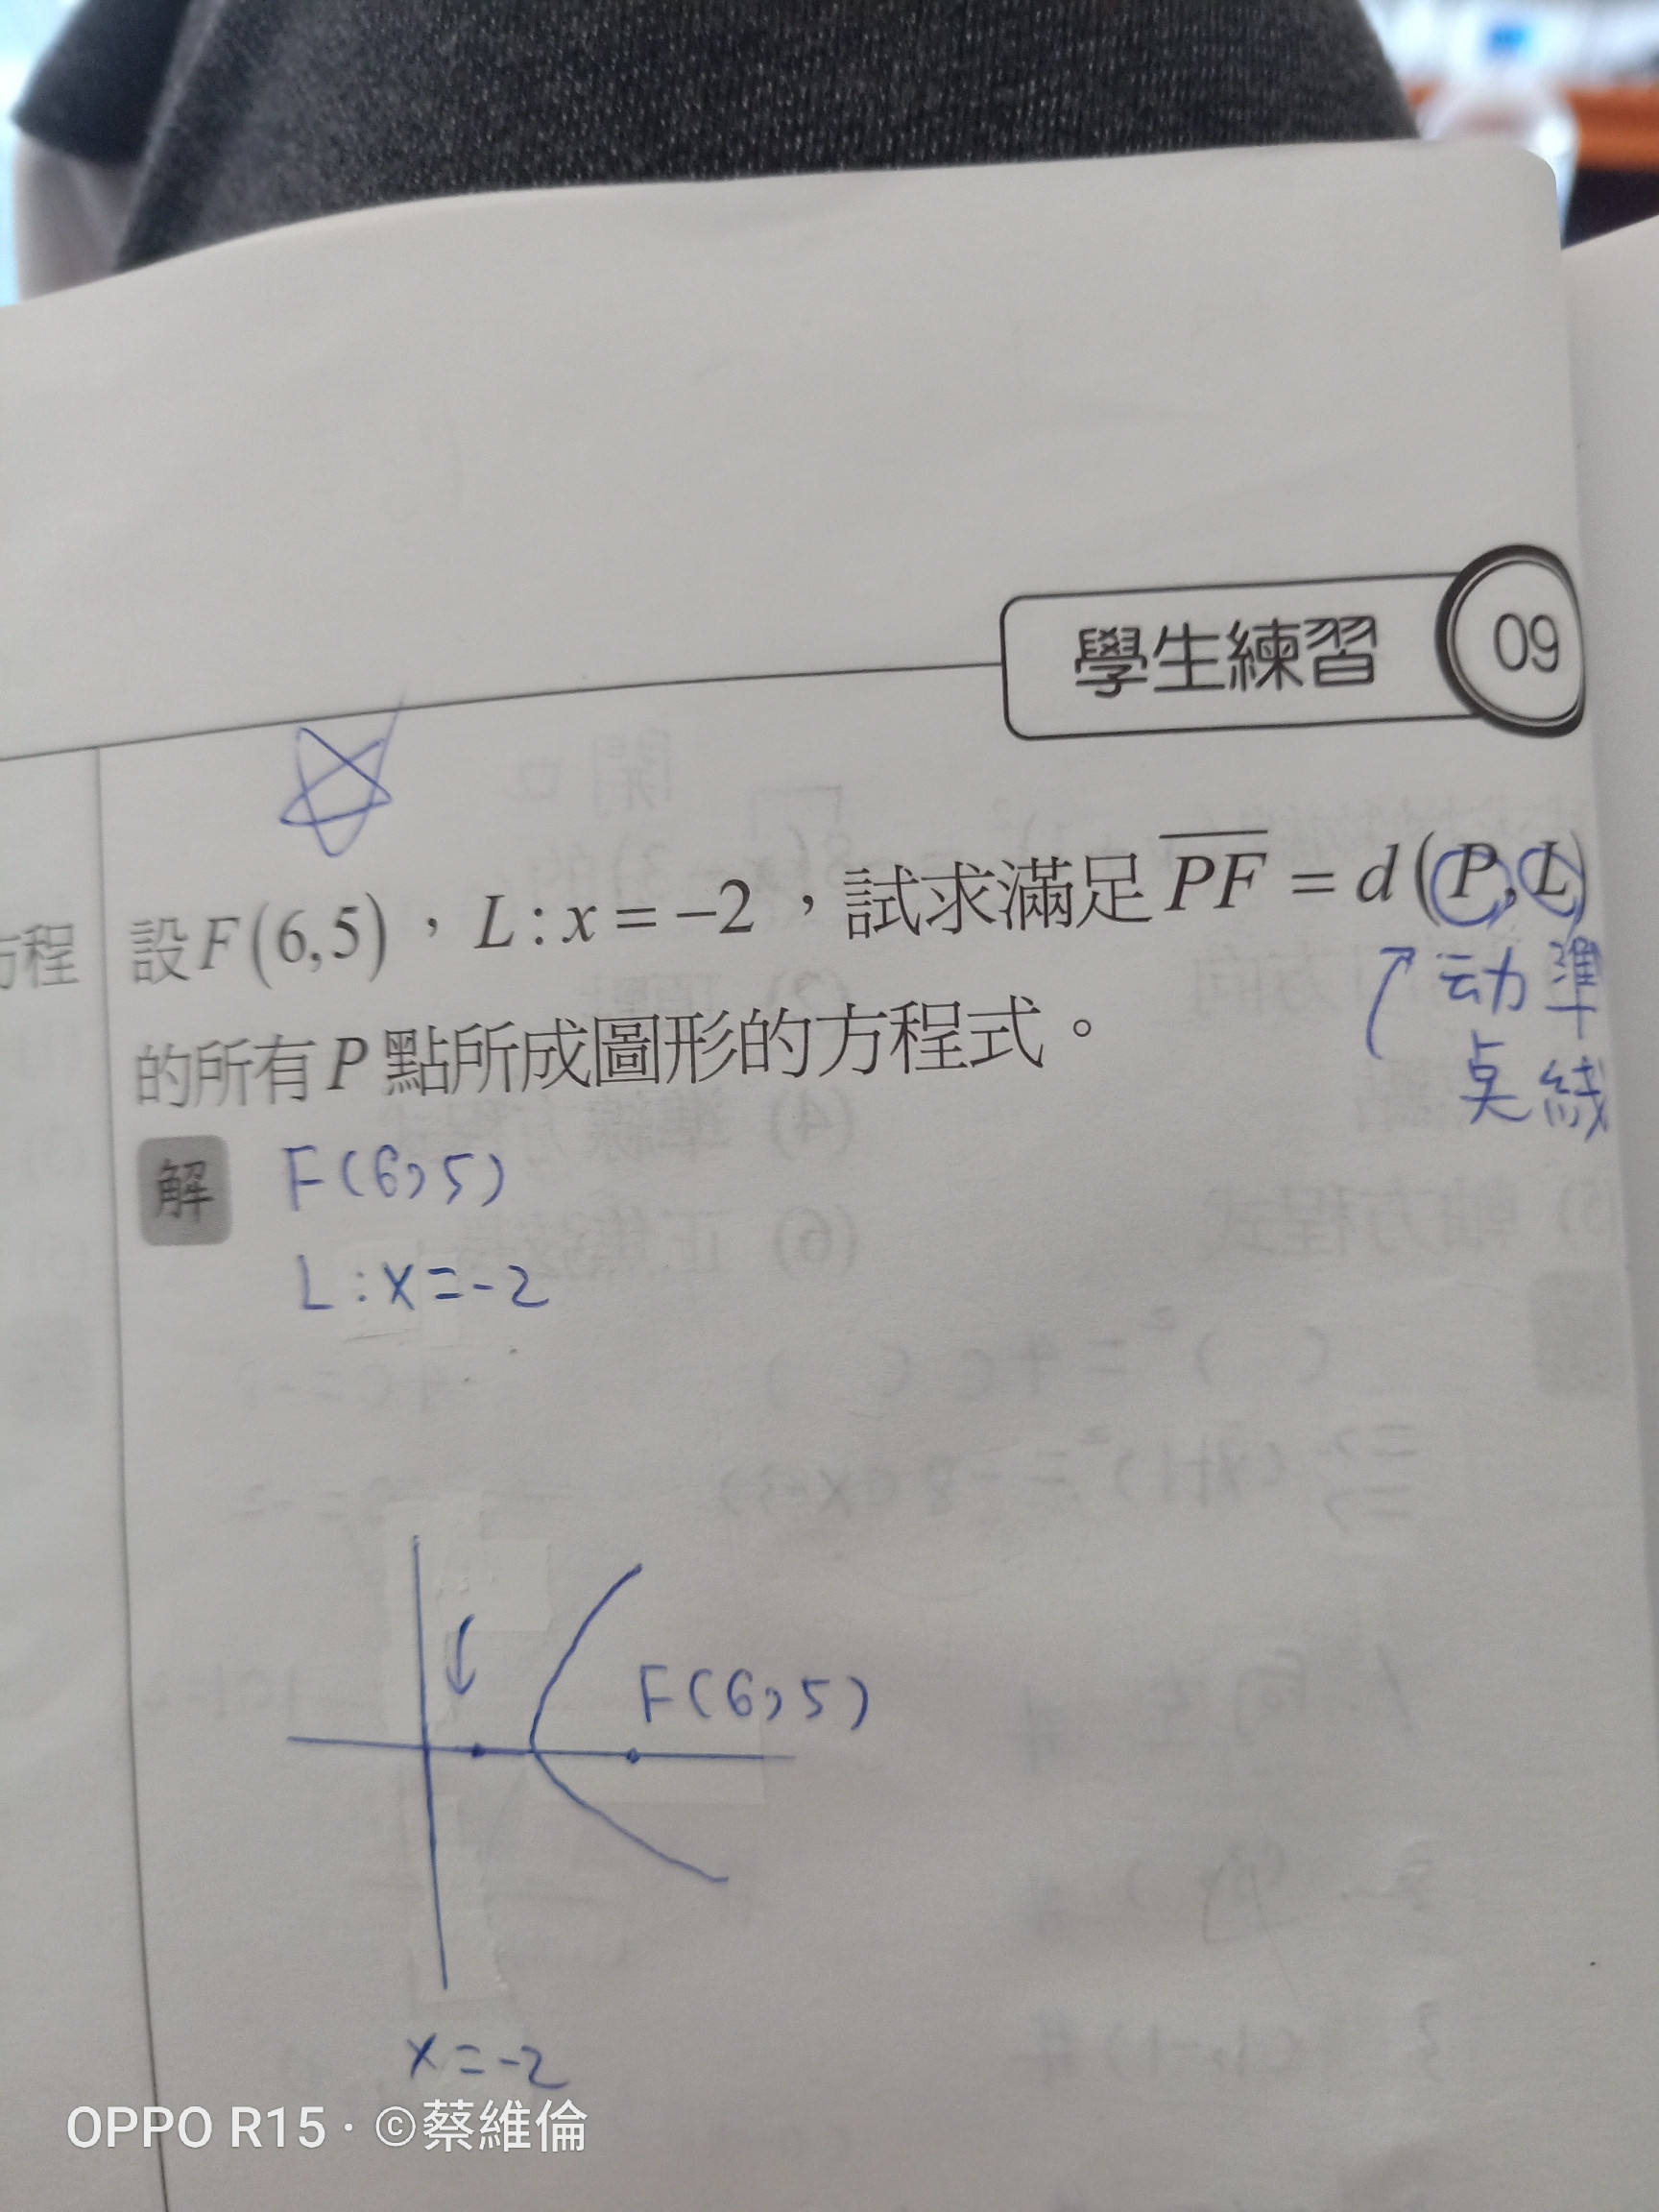 學生練習 09
方程
設F(6,5),L:x=-2,試求滿足PF=d(P,L)
动點 準线
的所有P點所成圖形的方程式。
解 F(6,5)
L:x=-2
F(6,5)
x=-2
OPPO R15 · ©蔡維倫